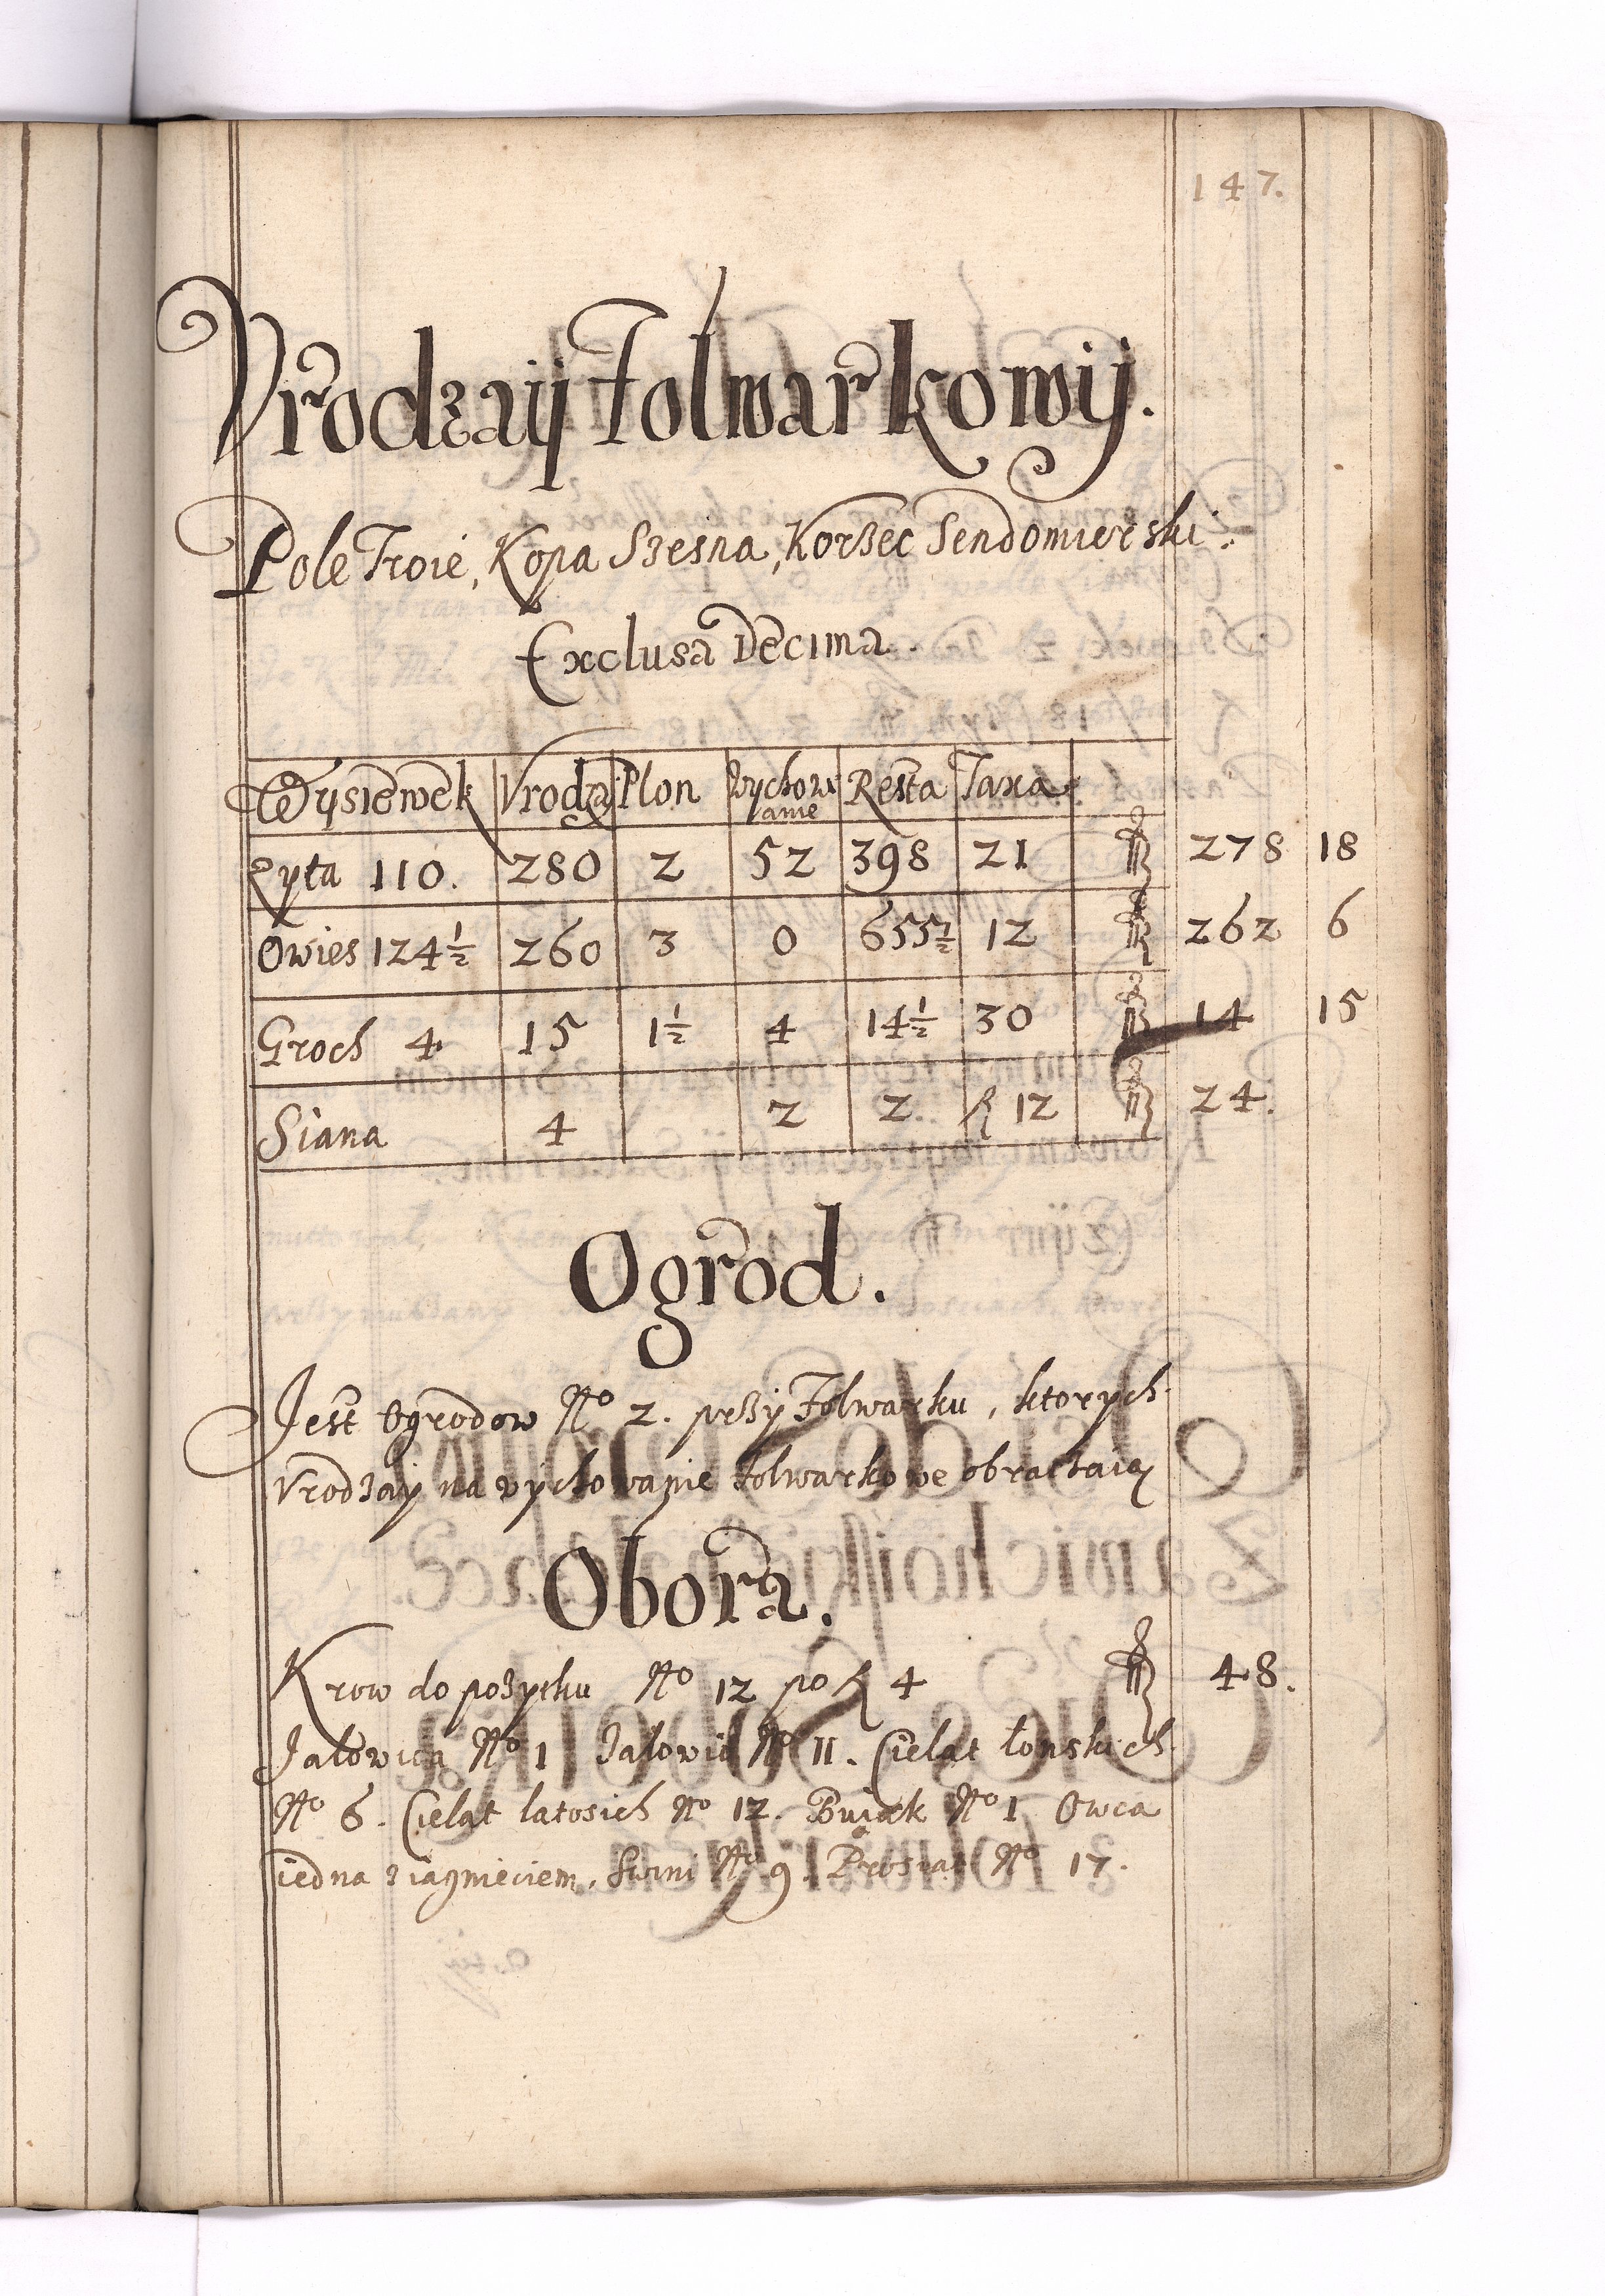 147.
Vrodzaij Folwarkowij.
Pole Troie, Kopa Szesna, Korzec Sendomierski.
Exclusa Decima.
Wysiewek Vrodzaj Plon Wychowanie Resta Taxa
Zyta 110. 280 2 52 398 21 fl 278 18
Owies 124 1/2 260 3 0 655 1/2 12 fl 262 6
Groch 4 15 1 1/2 4 14 1/2 30 fl 14 15
Siana 4 2 2 fl 12 fl 24.
Ogrod.
Jest Ogrodow No 2. przy Folwarku, ktorych
Vrodzaij na vychowanie folwarkowe obracaią
Obora.
Krow do pozytku No 12 po fl 4 fl 48.
Jałowica No 1 Jałowic No II. Cieląt łonskich
No 6. Cieląt latosich No 12. Buiak No 1 Owca
iedna z iagnieciem, Swini No 9. Prosiat No 17.